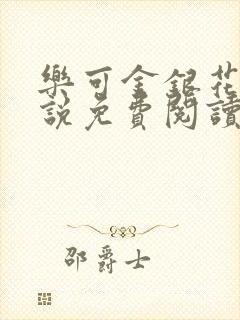 樂可金銀花
說免費閱讀
邵爵士